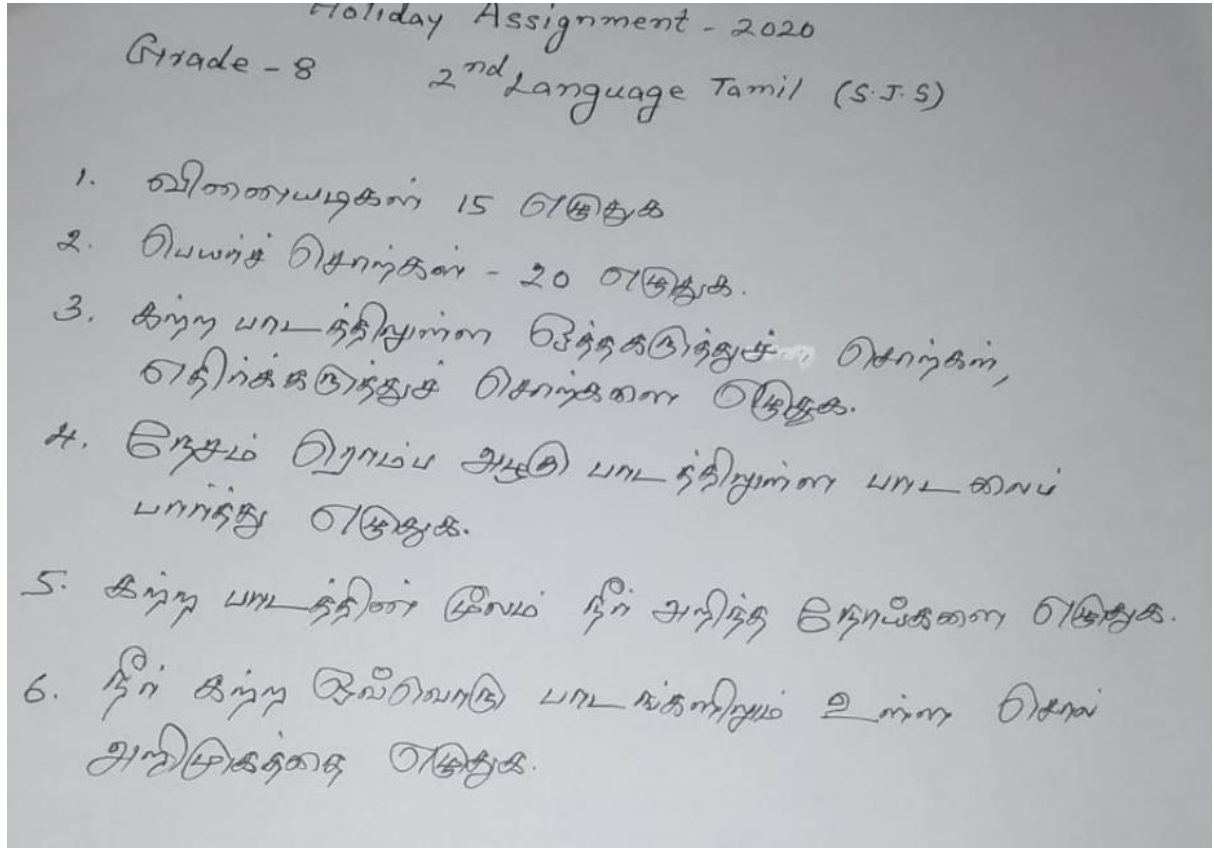 Holiday Assignment - 2020
Grade - 8 2nd Language Tamil (S.J.S)
1. வினையடிகள் 15 எழுதுக
2. பெயர்ச் சொற்கள் - 20 எழுதுக.
3. கற்ற பாடத்திலுள்ள ஒத்தகருத்துச் சொற்கள்,
எதிர்க்கருத்துச் சொற்களை எழுதுக.
4. நேசம் ரொம்ப அழகு பாடத்திலுள்ள பாடலைப்
பார்த்து எழுதுக.
5. கற்ற பாடத்தின் மூலம் நீர் அறிந்த நோய்களை எழுதுக.
6. நீர் கற்ற ஒவ்வொரு பாடங்களிலும் உள்ள சொல்
அறிமுகத்தை எழுதுக.